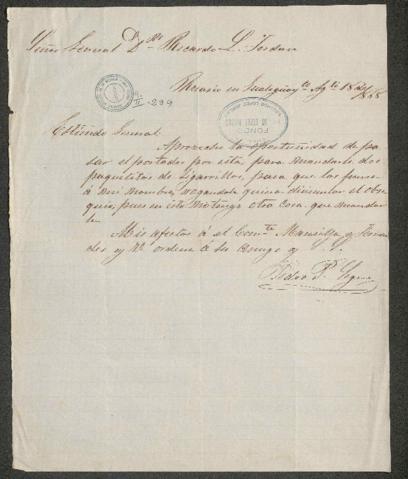 Señor General Dn Ricardo L. Jordan
Rosario en Gualeguay Agto 18 de
1868
II-299
FONDO
Estimado General
Aprovecho la oportunidad de pa
sar el portador por esta, para mandarle dos
paquetitos de sigarrillos, para que los fume
á mi nombre, rogandole quiera disimular el obse
quio, pues en esta no tengo otra cosa que mandar
le
Mis afectos á el Comte Mansilla y
des y ordene á su amigo y
Pedro P.